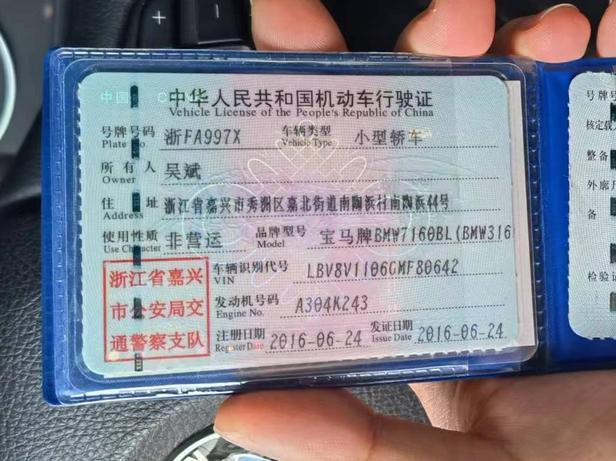 中华人民共和国机动车行驶证
Vehicle License of the People's Republic of China
号牌号码 浙FA997X 车辆类型 小型轿车
Plate No. Vehicle Type
所有人 吴斌
Owner
住址 浙江省嘉兴市秀洲区嘉北街道南陶浜村南陶浜44号
Address
使用性质 非营运 品牌型号 宝马牌BMW7160BL(BMW316
Use Character Model
浙江省嘉兴
市公安局交
通警察支队
车辆识别代号 LBV8V1106GMF80642
VIN
发动机号码 A304K243
Engine No.
注册日期 2016-06-24 发证日期 2016-06-24
Register Date Issue Date
号牌号
核定载
整备
外廓
备
检验记